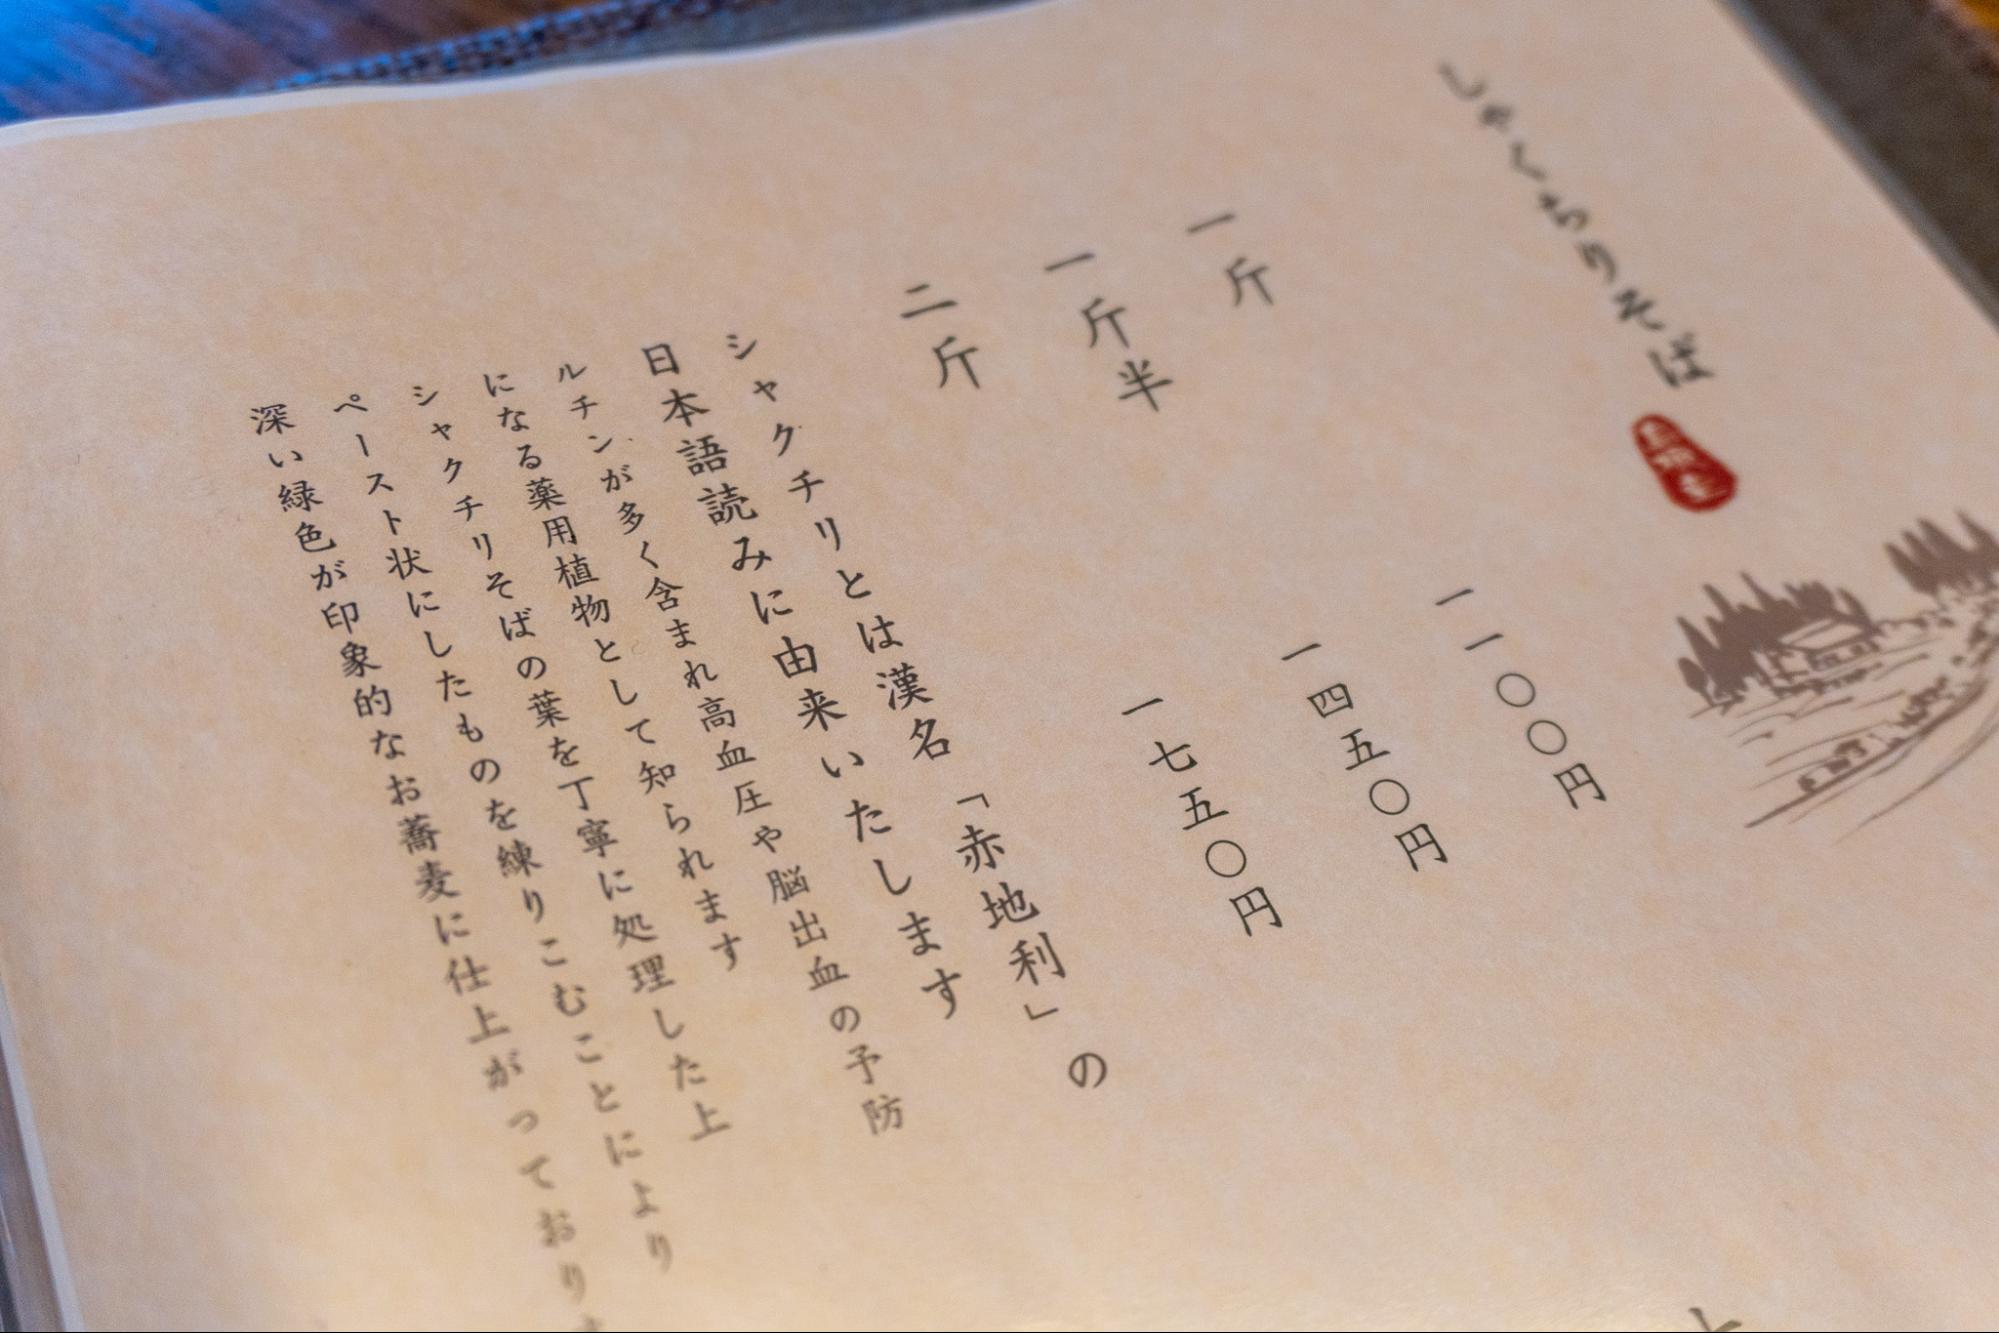 しゃくちりそば
一斤 一一〇〇円
一斤半 一四五〇円
二斤 一七五〇円
シャクチリとは漢名「赤地利」の
日本語読みに由来いたします
ルチンが多く含まれ高血圧や脳出血の予防
になる薬用植物として知られます
シャクチリそばの葉を丁寧に処理した上
ペースト状にしたものを練りこむことにより
深い緑色が印象的なお蕎麦に仕上がっており